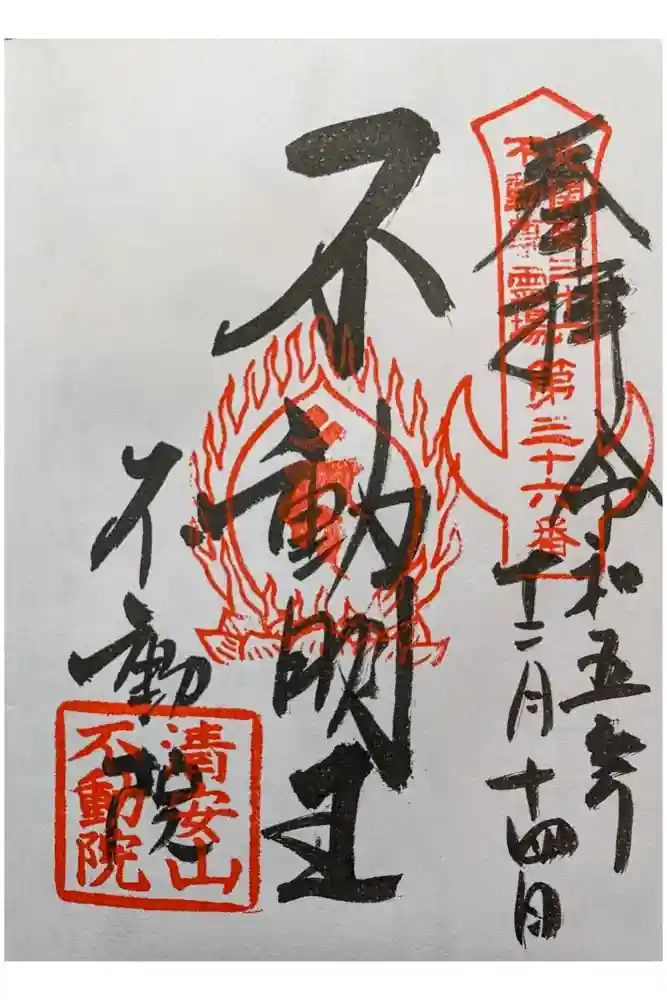 奉拝
令和五年
十二月十四日
北関東三十六
不動尊霊場
第三十六番
不動明王
不動院
清安山
不動院